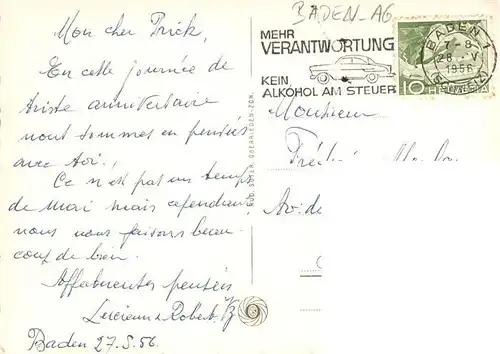 Mon cher Frick,
En cette journée de
triste anniversaire
nous sommes en pensées
avec toi!
Ce n'est pas un temps
de mai mais cependant
nous nous faisons beau-
coup de bien.
Affectueuses pensées
Robert
Baden 27.5.56
RUD. SUTER, OBERRIEDEN-ZCH.
BADEN-AG
MEHR
VERANTWORTUNG
KEIN
ALKOHOL AM STEUER
BADEN 1
7-8
28. V
1956
(SCHWEIZ)
10 HELVETIA
Monsieur
Av. de